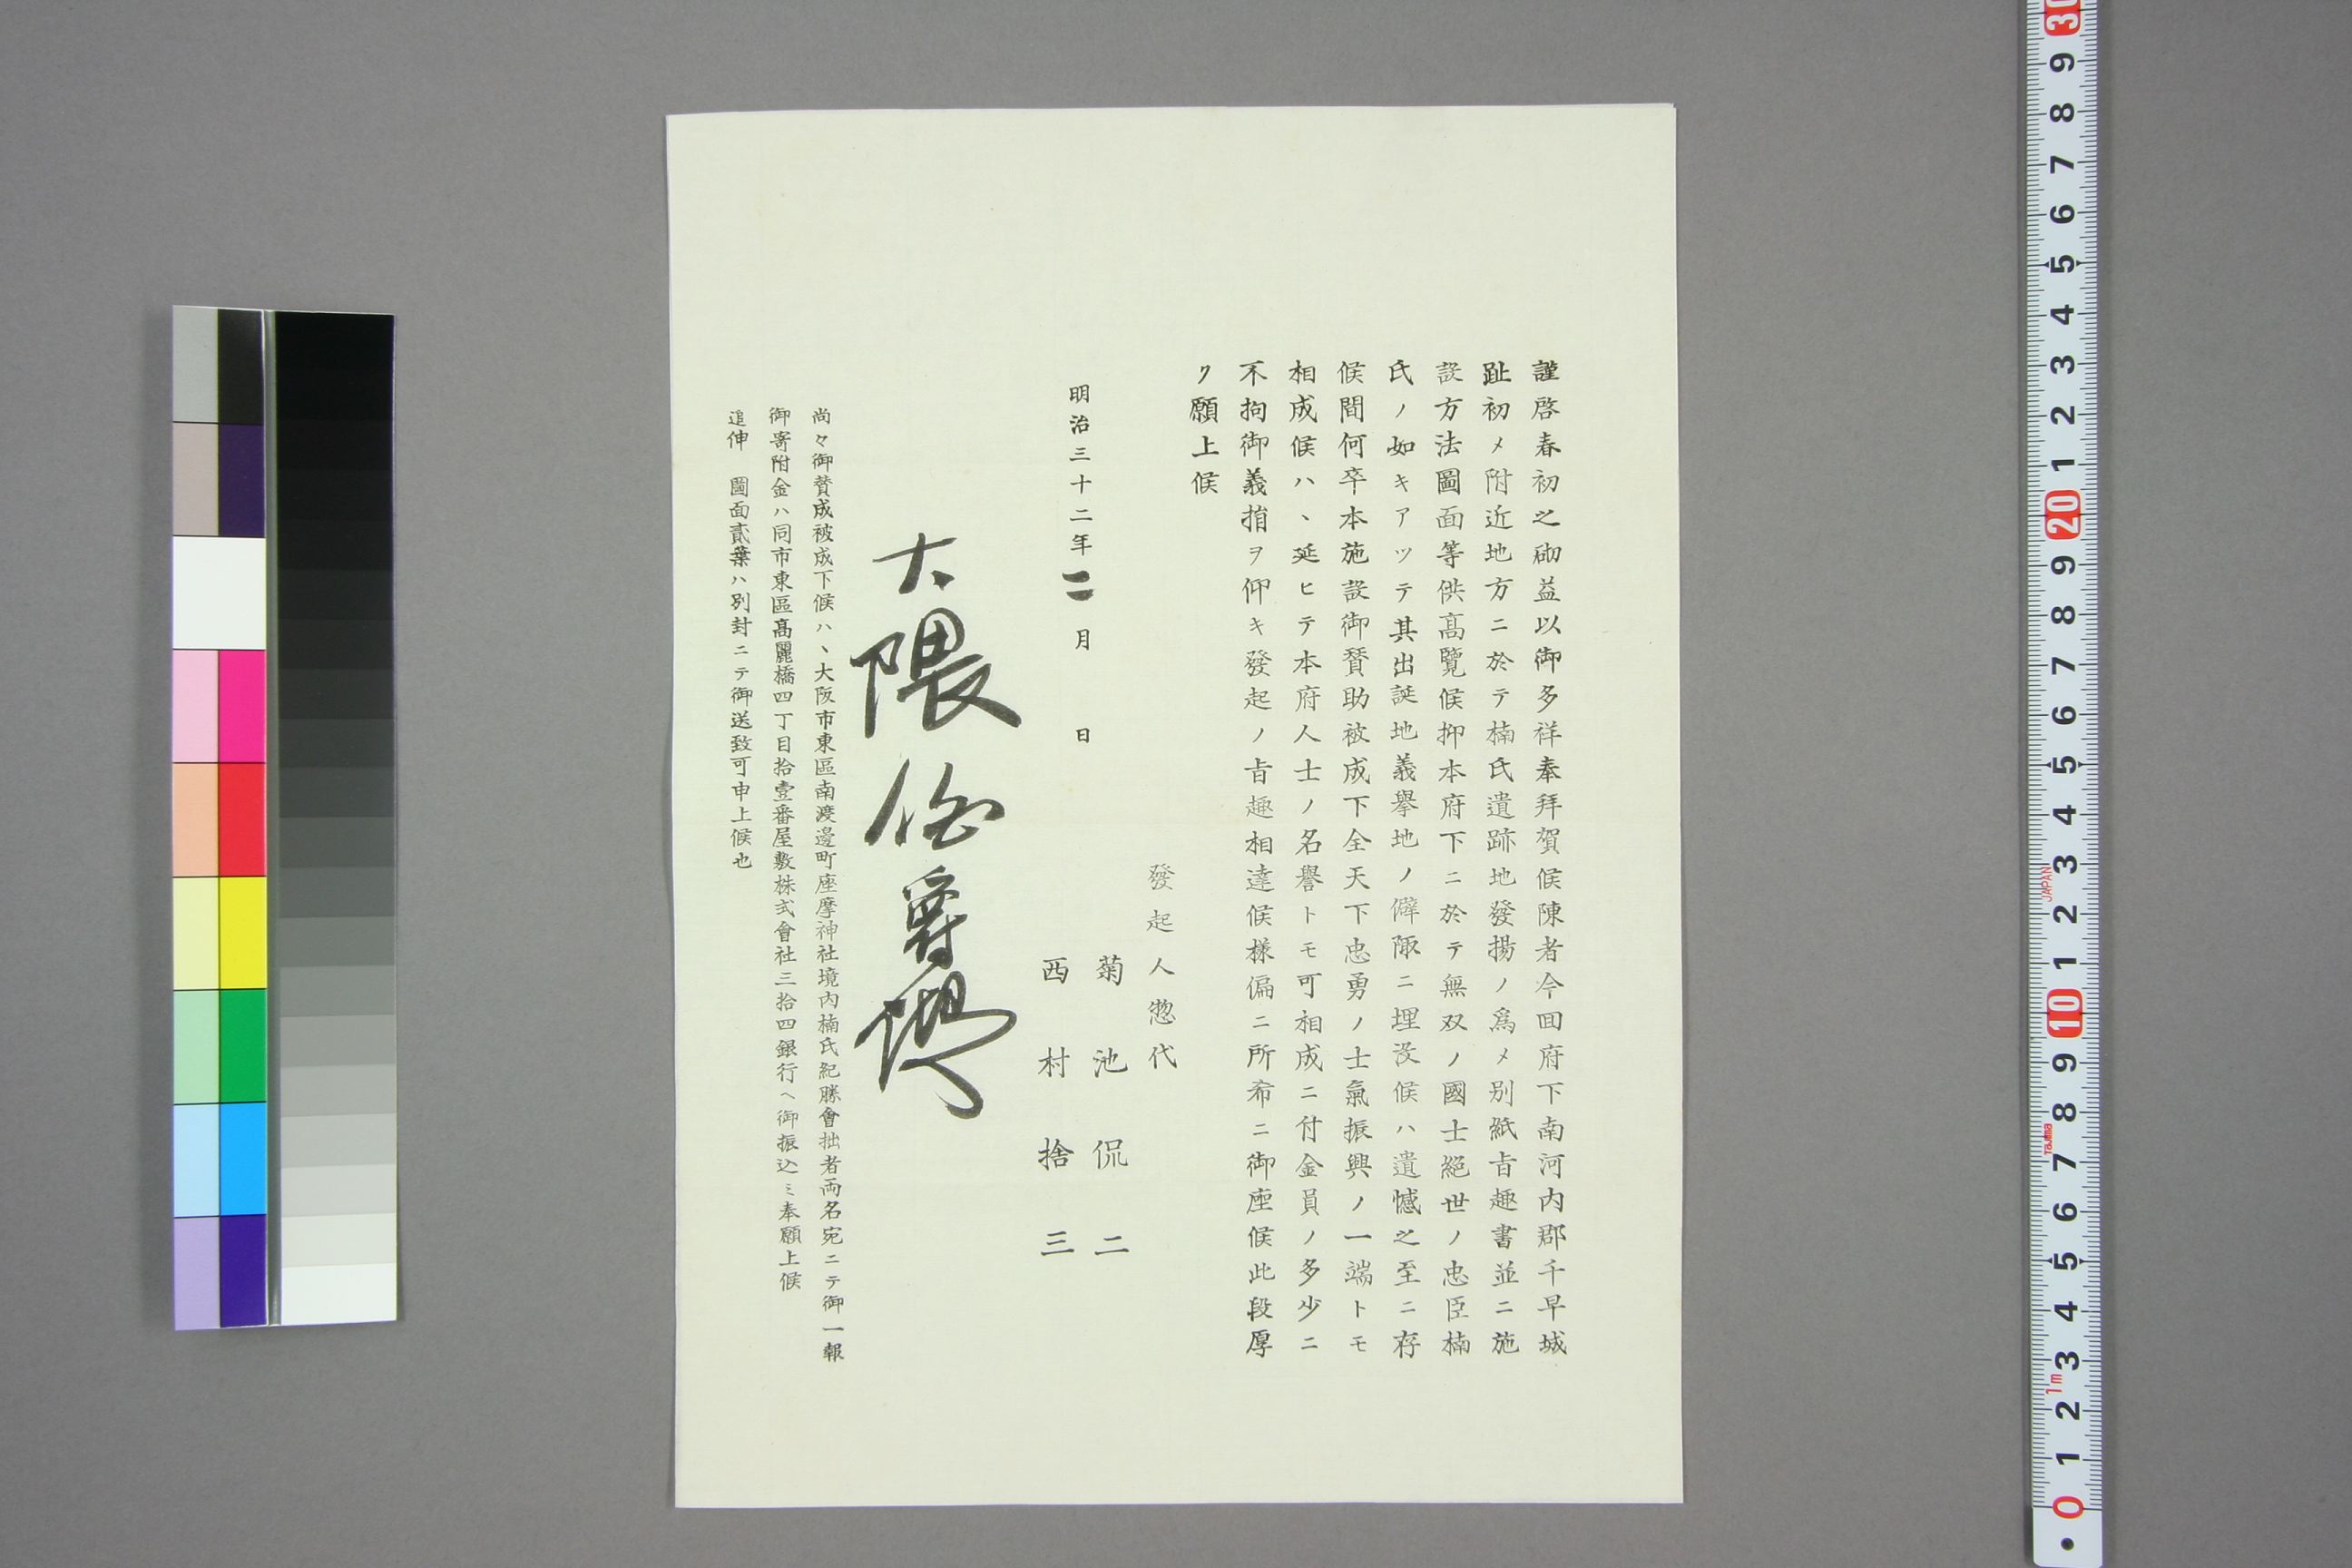 謹啓春初之砌益以御多祥奉拜賀候陳者今回府下南河内郡千早城
趾初メ附近地方ニ於テ楠氏遺跡地發揚ノ爲メ別紙㫖趣書並ニ施
設方法圖面等供髙覽候抑本府下ニ於テ無双ノ國士絕世ノ忠臣楠
氏ノ如キアツテ其出誕地義擧地ノ僻陬ニ埋沒候ハ遺憾之至ニ存
候間何卒本施設御賛助被成下全天下忠勇ノ士氣振興ノ一端トモ
相成候ハヽ延ヒテ本府人士ノ名譽トモ可相成ニ付金員ノ多少ニ
不拘御義捐ヲ仰キ發起ノ㫖趣相達候樣偏ニ所希ニ御座候此段厚
ク願上候
發起人惣代
菊池侃二
西村捨三
明治三十二年二月　日
大隈伯爵殿
尚々御賛成被成下候ハヽ大阪市東區南渡邊町座摩神社境内楠氏紀勝會拙者両名宛ニテ御一報
御寄附金ハ同市東區髙麗橋四丁目拾壹番屋敷株式會社三拾四銀行ヘ御振込ミ奉願上候
追伸　圖面貳葉ハ別封ニテ御送致可申上候也
0 1 2 3 4 5 6 7 8 9 10 1 2 3 4 5 6 7 8 9 20 1 2 3 4 5 6 7 8 9 30
1m
Tajima
JAPAN